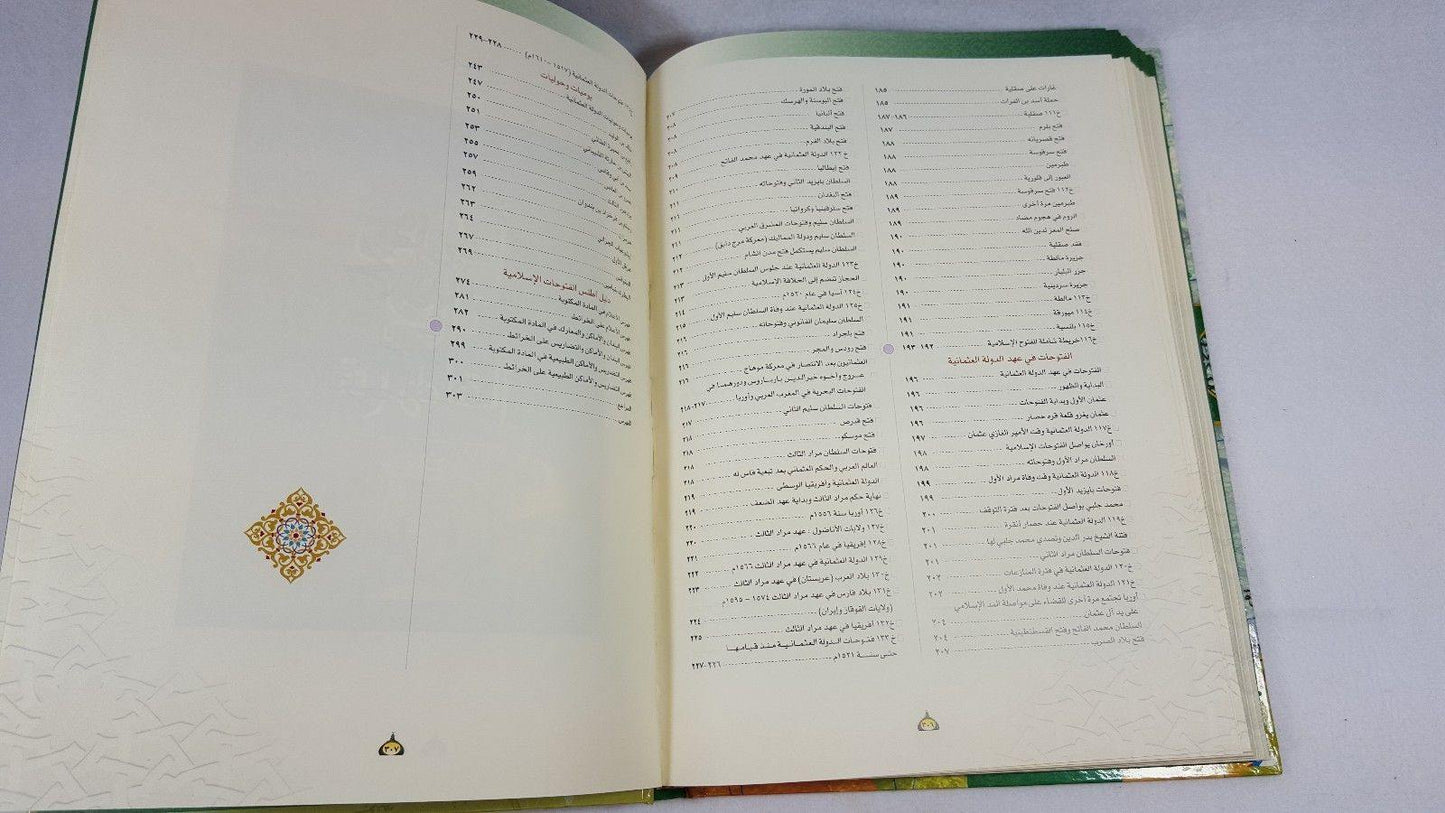 غارات على صقلية ١٨٥
حملة أسد بن الفرات ١٨٥
خ١١١ صقلية ١٨٦-١٨٧
فتح بلرم ١٨٧
فتح قصريانه ١٨٨
فتح سرقوسة ١٨٨
طبرمين ١٨٨
العبور إلى قلورية ١٨٨
خ١١٢ فتح سرقوسة ١٨٩
طبرمين مرة أخرى ١٨٩
الروم في هجوم مضاد ١٨٩
صنع المعز لدين الله ١٩٠
فقد صقلية ١٩٠
جزيرة مالطة ١٩٠
جزر البليار ١٩٠
جزيرة سردينية ١٩٠
خ١١٣ مالطة ١٩١
خ١١٤ ميورقة ١٩١
خ١١٥ بلنسية ١٩١
خ١١٦ خريطة شاملة للفتوح الإسلامية ١٩٢-١٩٣
الفتوحات في عهد الدولة العثمانية
الفتوحات في عهد الدولة العثمانية ١٩٦
البداية والظهور ١٩٦
عثمان الأول وبداية الفتوحات ١٩٦
عثمان يغزو قلعة قره حصار ١٩٦
خ١١٧ الدولة العثمانية وقت الأمير الغازي عثمان ١٩٧
أورخان يواصل الفتوحات الإسلامية ١٩٨
السلطان مراد الأول وفتوحاته ١٩٨
خ١١٨ الدولة العثمانية وقت وفاة مراد الأول ١٩٩
فتوحات بايزيد الأول ١٩٩
محمد جلبي يواصل الفتوحات بعد فترة التوقف ٢٠٠
خ١١٩ الدولة العثمانية عند حصار أنقرة ٢٠١
فتنة الشيخ بدر الدين وتصدي محمد جلبي لها ٢٠١
فتوحات السلطان مراد الثاني ٢٠١
خ١٢٠ الدولة العثمانية في فترة المنازعات ٢٠٢
خ١٢١ الدولة العثمانية عند وفاة محمد الأول ٢٠٢
أوربا تجتمع مرة أخرى للقضاء على مواصلة المد الإسلامي
على يد آل عثمان ٢٠٤
السلطان محمد الفاتح وفتح القسطنطينية ٢٠٤
فتح بلاد الصرب ٢٠٧
فتح بلاد المورة
فتح البوسنة والهرسك ٢٠٧
فتح ألبانيا ٢٠٨
فتح البندقية ٢٠٨
فتح بلاد القرم ٢٠٨
خ ١٢٢ الدولة العثمانية في عهد محمد الفاتح ٢٠٨
فتح إيطاليا ٢٠٩
السلطان بايزيد الثاني وفتوحاته ٢١٠
فتح البغدان ٢١١
فتح سلوفينيا وكرواتيا ٢١١
السلطان سليم وفتوحات المشرق العربي ٢١١
السلطان سليم ودولة المماليك (معركة مرج دابق) ٢١٢
السلطان سليم يستكمل فتح مدن الشام ٢١٢
خ١٢٣ الدولة العثمانية عند جلوس السلطان سليم الأول ٢١٣
الحجاز تنضم إلى الخلافة الإسلامية ٢١٣
خ١٢٤ آسيا في عام ١٥٢٠م ٢١٤
خ١٢٥ الدولة العثمانية عند وفاة السلطان سليم الأول ٢١٥
السلطان سليمان القانوني وفتوحاته ٢١٦
فتح بلجراد ٢١٦
فتح رودس والمجر ٢١٦
العثمانيون بعد الانتصار في معركة موهاج ٢١٦
عروج وأخوه خير الدين بارباروس ودورهما في
الفتوحات البحرية في المغرب العربي وأوربا ٢١٧-٢١٨
فتوحات السلطان سليم الثاني ٢١٧
فتح قبرص ٢١٨
فتح موسكو ٢١٨
فتوحات السلطان مراد الثالث ٢١٨
العالم العربي والحكم العثماني بعد تبعية فاس له ٢١٨
الدولة العثمانية وأفريقيا الوسطى ٢١٩
نهاية حكم مراد الثالث وبداية عهد الضعف ٢١٩
خ١٢٦ أوربا سنة ١٥٥٦م ٢٢٠
خ١٢٧ ولايات الأناضول: عهد مراد الثالث ٢٢٠
خ١٢٨ إفريقيا في عام ١٥٦٦م ٢٢١
خ١٢٩ الدولة العثمانية في عهد مراد الثالث ١٥٦٦م ٢٢٢
خ١٣٠ بلاد العرب (عربستان) في عهد مراد الثالث ٢٢٣
خ١٣١ بلاد فارس في عهد مراد الثالث ١٥٧٤ – ١٥٩٥م
(ولايات القوقاز وإيران) ٢٢٤
خ١٣٢ أفريقيا في عهد مراد الثالث ٢٢٥
خ ١٣٣ فتوحات الدولة العثمانية منذ قيامها
حتى سنة ١٥٢١م ٢٢٦-٢٢٧
٣٠٦
فتوحات الدولة العثمانية (١٥١٧ – ١٦١٠م) ٢٢٨-٢٢٩
يوميات وحوليات
٢٤٣
٢٤٧
٢٥٠
٢٥١
٢٥٣
٢٥٥
٢٥٧
٢٥٩
٢٦٢
٢٦٣
٢٦٤
٢٦٧
٢٦٩
ذيل أطلس الفتوحات الإسلامية
فهرس الأعلام في المادة المكتوبة ٢٧٤
فهرس الأعلام على الخرائط ٢٨١
فهرس البلدان والأماكن والمعارك في المادة المكتوبة ٢٨٢
فهرس البلدان والأماكن والتضاريس على الخرائط ٢٩٠
فهرس التضاريس والأماكن الطبيعية في المادة المكتوبة ٢٩٩
فهرس التضاريس والأماكن الطبيعية على الخرائط ٣٠٠
المراجع ٣٠١
الفهرس ٣٠٣
٣٠٧